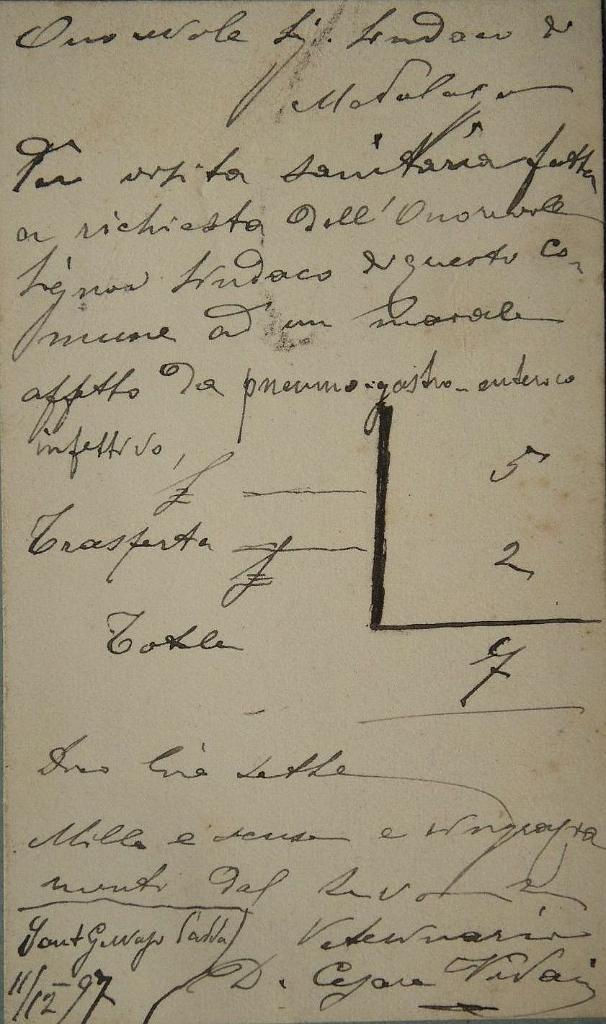 Onorevole Sig. Sindaco di
Per visita sanitaria fatta
a richiesta dell'Onorevole
Signor Sindaco di questo co-
mune ad un maiale
affetto da pneumo-gastro-enterico
infettivo,
£ 5
Trasferta £ 2
Totale 7
Dico lire sette
Mille e scuse e ringrazia
menti dal
Sant Gervaso d'Adda Veterinario
11/12-97 D. Cesare Vidai